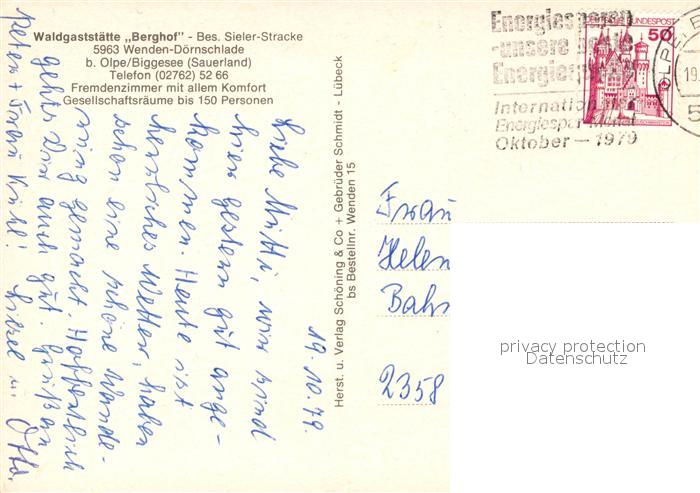 Waldgaststätte „Berghof" - Bes. Sieler-Stracke
5963 Wenden-Dörnschlade
b. Olpe/Biggesee (Sauerland)
Telefon (02762) 52 66
Fremdenzimmer mit allem Komfort
Gesellschaftsräume bis 150 Personen
19.10.79.
Liebe Mutti, wir sind
hier gestern gut ange-
kommen. Heute ist
herrliches Wetter, haben
schon eine schöne Wande-
rung gemacht. Hoffentlich
gehts Dir auch gut. Grüß an
Peter + Frau
Otto.
Herst. u. Verlag Schöning & Co + Gebrüder Schmidt - Lübeck
bs Bestellnr. Wenden 15
Energiesparen
-unsere beste
Energie
Internation
Energiespar-Monat
Oktober - 1979
DEUTSCHE BUNDESPOST
50
OLPE
19.
5
Frau
Helen
Bahn
2358
privacy protection
Datenschutz